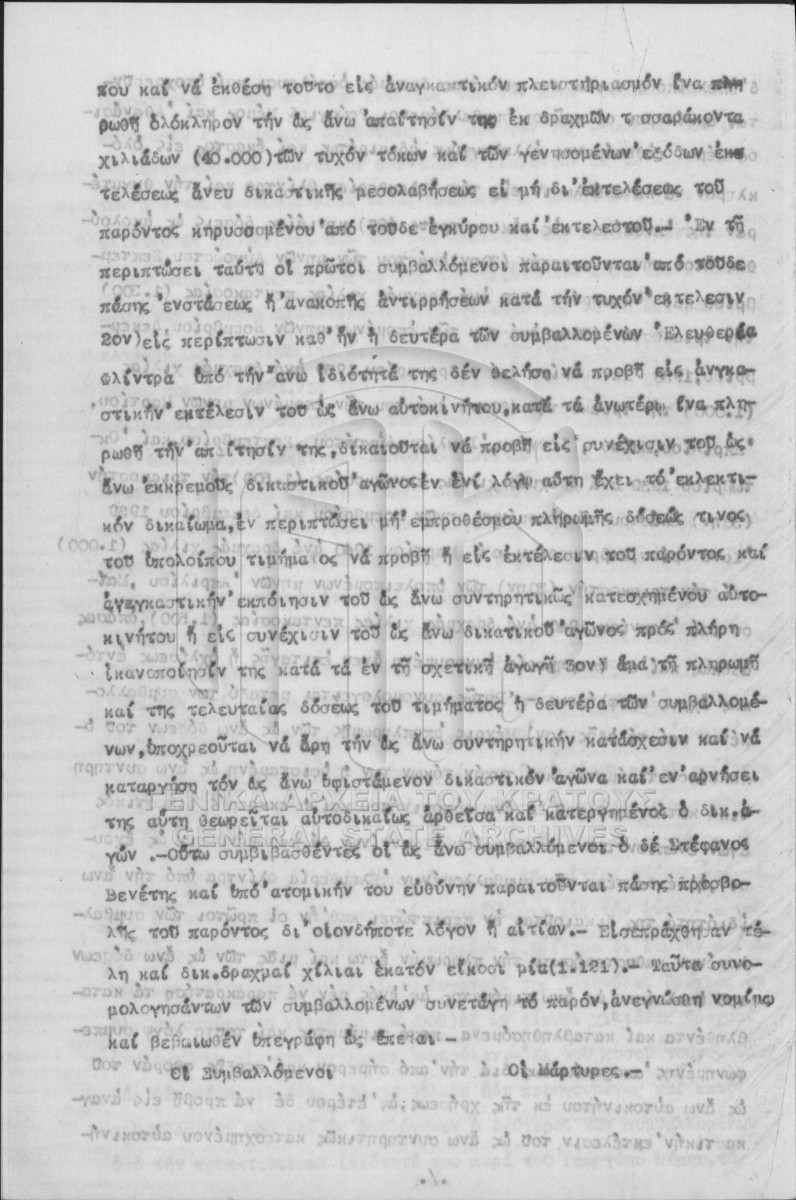 που καί νά ἐκθέση τοῦτο εἰς ἀναγκαστικόν πλειστηριασμόν ἵνα πλη
ρωθῆ ὁλόκληρον τήν ὡς ἄνω ἀπαίτησίν της ἐκ δραχμῶν τ σσαράκοντα
χιλιάδων (40.000)τῶν τυχόν τόκων καί τῶν γενησομένων ἐξόδων ἐκ
τελέσεως ἄνευ δικαστικῆς μεσολαβήσεως εἰ μή δι'ἐκτελέσεως τοῦ
παρόντος κηρυσσομένου ἀπό τοῦδε ἐγκύρου καί ἐκτελεστοῦ.- Ἐν τῆ
περιπτώσει ταύτη οἱ πρῶτοι συμβαλλόμενοι παραιτοῦνται ἀπό τοῦδε
πάσης ἐνστάσεως ἤ ἀνακοπῆς ἀντιρρήσεων κατά τήν τυχόν ἐκτέλεσιν
2ον)εἰς περίπτωσιν καθ'ἥν ἡ δευτέρα τῶν συμβαλλομένων Ἐλευθερία
Φλίντρα ὑπό τήν ἄνω ἰδιότητά της δέν θελήση νά προβῆ εἰς ἀνγκα-
στικήν ἐκτέλεσιν τοῦ ὡς ἄνω αὐτοκινήτου,κατά τά ἀνωτέρω ἵνα πλη-
ρωθῆ τήν ἀπ ίτησίν της,δικαιοῦται νά προβῆ εἰς συνέχισιν τοῦ ὡς
ἄνω ἐκκρεμοῦς δικαστικοῦ ἀγῶνος ἐν ἑνί λόγῳ αὕτη ἔχει τό ἐκλεκτι-
κόν δικαίωμα,ἐν περιπτώσει μή ἐμπροθέσμου πληρωμῆς δόσεώς τινος
τοῦ ὑπολοίπου τιμήματος νά προβῆ ἤ εἰς ἐκτέλεσιν τοῦ παρόντος καί
ἀναγκαστικήν ἐκποίησιν τοῦ ὡς ἄνω συντηρητικῶς κατεσχημένου αὐτο-
κινήτου ἤ εἰς συνέχισιν τοῦ ὡς ἄνω δικατικοῦ ἀγῶνος πρός πλήρη
ἱκανοποίησίν της κατά τά ἐν τῆ σχετικῆ ἀγωγῆ 3ον) ἅμα τῆ πληρωμῆ
καί της τελευταίας δόσεως τοῦ τιμήματος ἡ δευτέρα τῶν συμβαλλομέ-
νων,ὑποχρεοῦται νά ἄρη τήν ὡς ἄνω συντηρητικήν κατάσχεσιν καί νά
καταργήση τόν ὡς ἄνω ὑφιστάμενον δικαστικόν ἀγῶνα καί ἐν ἀρνήσει
της αὕτη θεωρεῖται αὐτοδικαίως ἀρθεῖσα καί κατεργημένος ὁ δικ.ἀ-
γών .-Οὕτω συμβιβασθέντες οἱ ὡς ἄνω συμβαλλόμενοι ὁ δέ Στέφανος
Βενέτης καί ὑπό ἀτομικήν του εὐθύνην παραιτοῦνται πάσης προσβο-
λῆς τοῦ παρόντος δι'οἱονδήποτε λόγον ἤ αἰτίαν.- Εἰσεπράχθησαν τέ-
λη καί δικ.δραχμαί χίλιαι ἑκατόν εἴκοσι μία(1.121).- Ταῦτα συνο-
μολογησάντων τῶν συμβαλλομένων συνετάγη τό παρόν,ἀνεγνώσθη νομίμως
καί βεβαιωθέν ὑπεγράφη ὡς ἕπεται -
Οἱ Συμβαλλόμενοι Οἱ Μάρτυρες.-
./.
ΓΕΝΙΚΑ ΑΡΧΕΙΑ ΤΟΥ ΚΡΑΤΟΥΣ
GENERAL STATE ARCHIVES